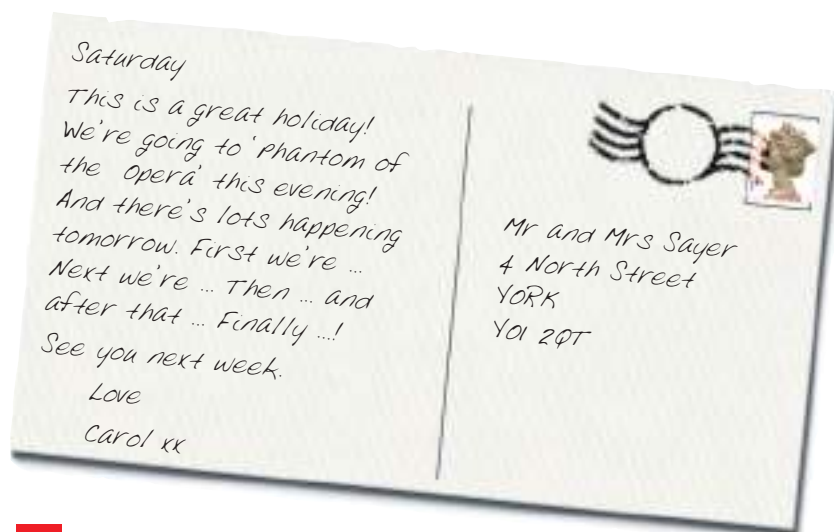 Saturday
This is a great holiday!
We're going to 'Phantom of
the Opera' this evening!
And there's lots happening
tomorrow. First we're ...
Next we're ... Then ... and
after that ... Finally ...!
See you next week.
Love
Carol xx
Mr and Mrs Sayer
4 North Street
YORK
YO1 2QT